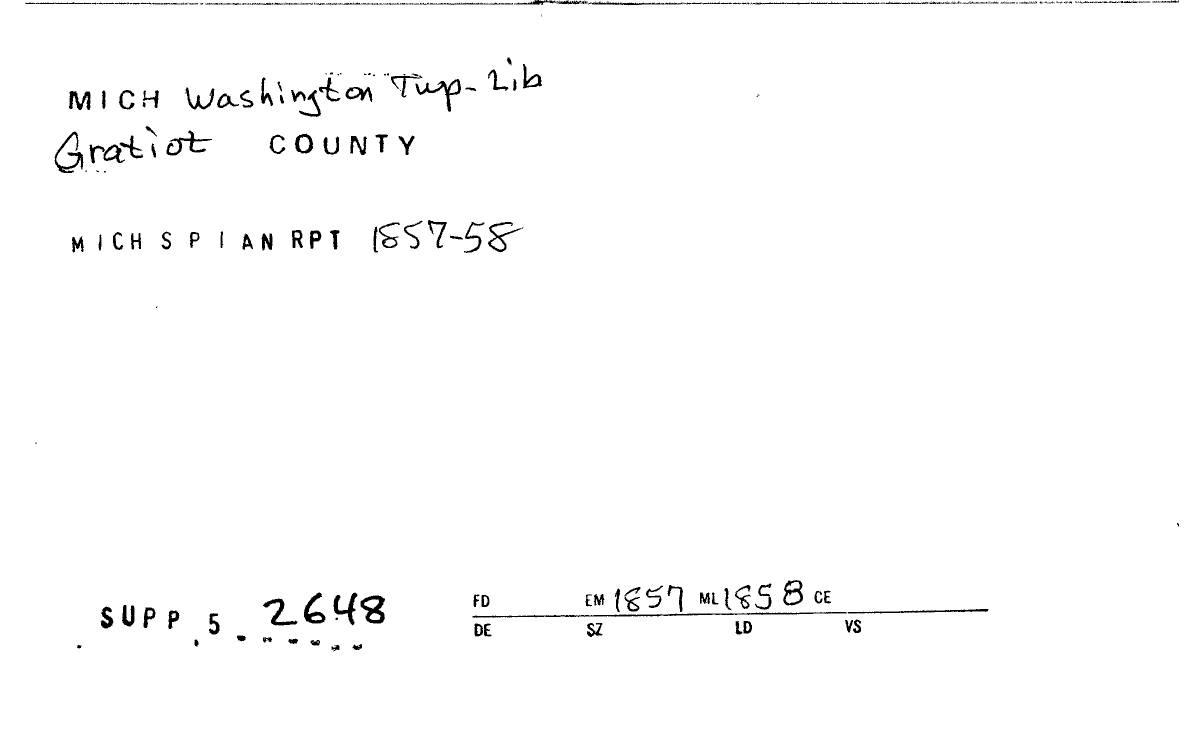 MICH Washington Twp-Lib
Gratiot COUNTY
MICH S P I AN RPT 1857-58
SUPP 5 2648
FD EM 1857 ML 1858 CE
DE SZ LD VS